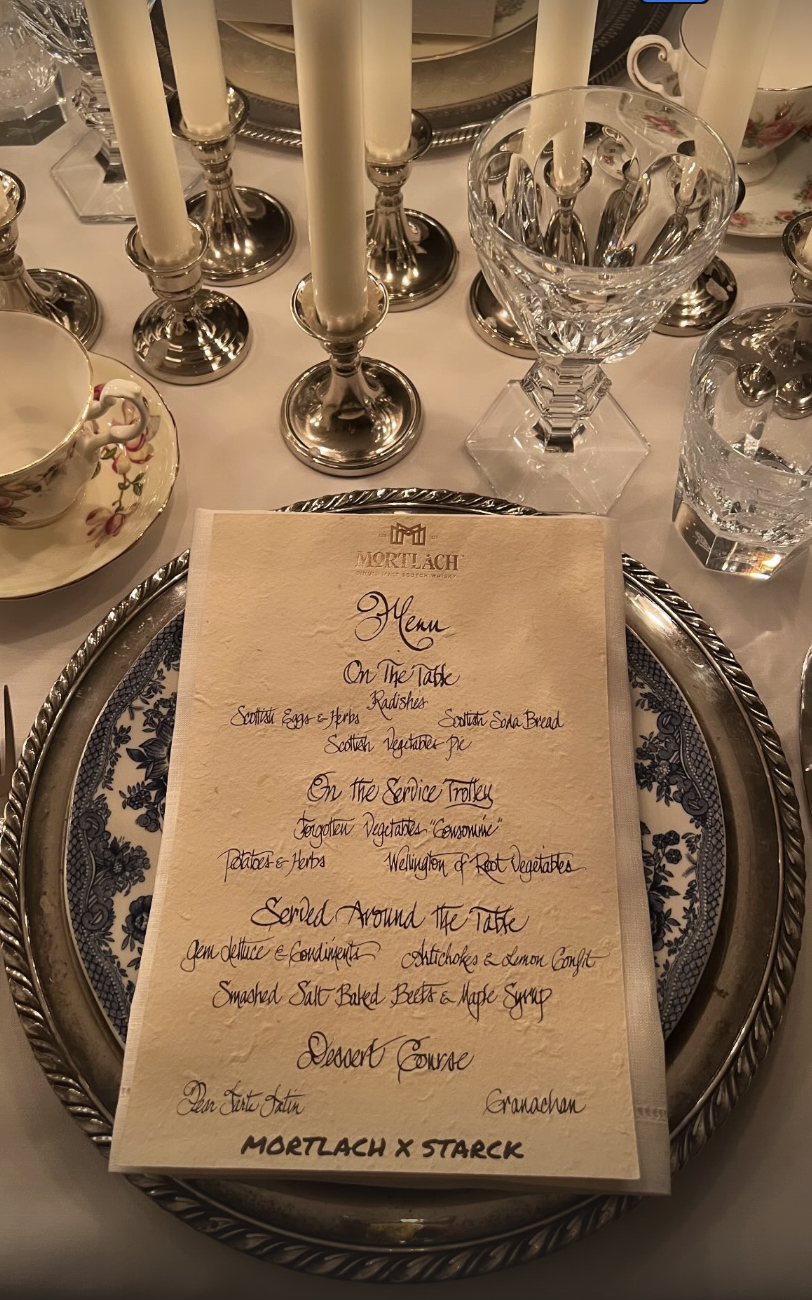 MORTLACH
SINGLE MALT SCOTCH WHISKY
Menu
On The Table
Radishes
Scottish Eggs & Herbs Scottish Soda Bread
Scottish Vegetables Pie
On the Service Trolley
Forgotten Vegetables "Consomme"
Potatoes & Herbs Wellington of Root Vegetables
Served Around the Table
Gem Lettuce & Condiments Artichokes & Lemon Confit
Smashed Salt Baked Beets & Maple Syrup
Dessert Course
Pear Tarte Tatin Cranachan
MORTLACH X STARCK